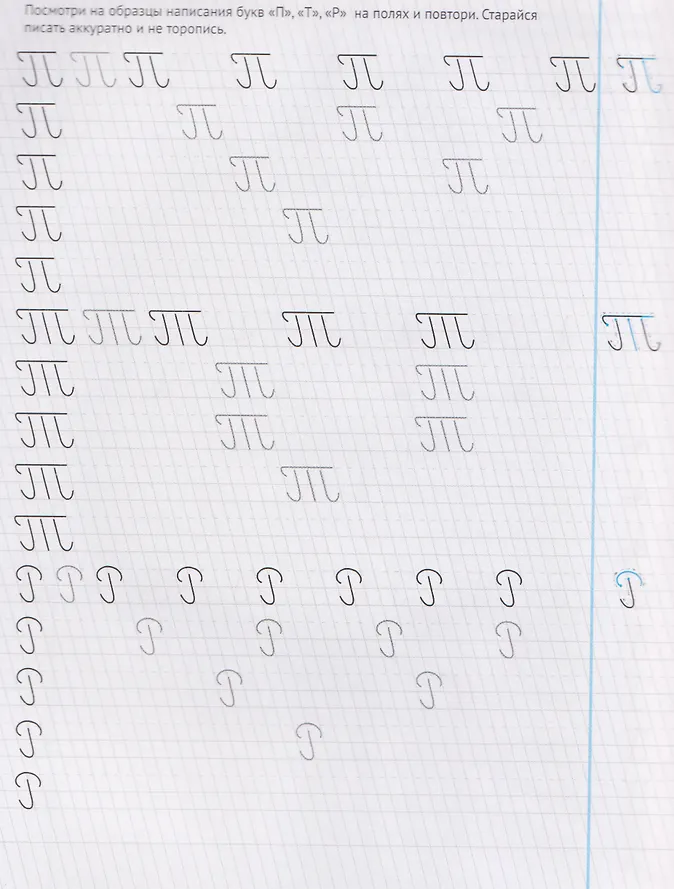 Посмотри на образцы написания букв «П», «Т», «Р» на полях и повтори. Старайся
писать аккуратно и не торопись.
П П П П П П П П
П П П П
П П П
П П
П
Т Т Т Т Т Т
Т Т Т
Т Т Т
Т Т
Т
Р Р Р Р Р Р Р Р Р
Р Р Р Р Р
Р Р Р
Р Р
Р